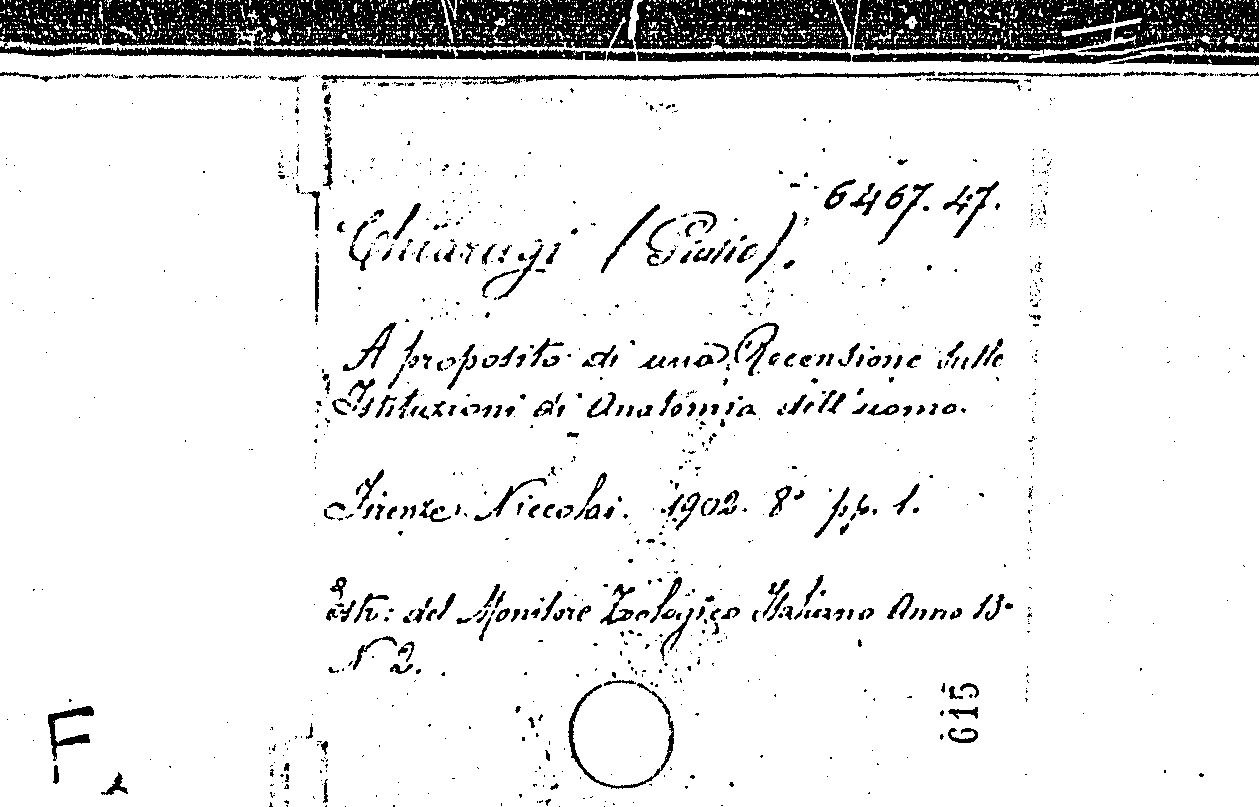 6467.47.
Chiarugi (Giulio).
A proposito di una Recensione sulle
Istituzioni di Anatomia dell'uomo.
Firenze. Niccolai. 1902. 8° pp. 1.
Estr: del Monitore Zoologico Italiano Anno 13°
N 2.
615
F